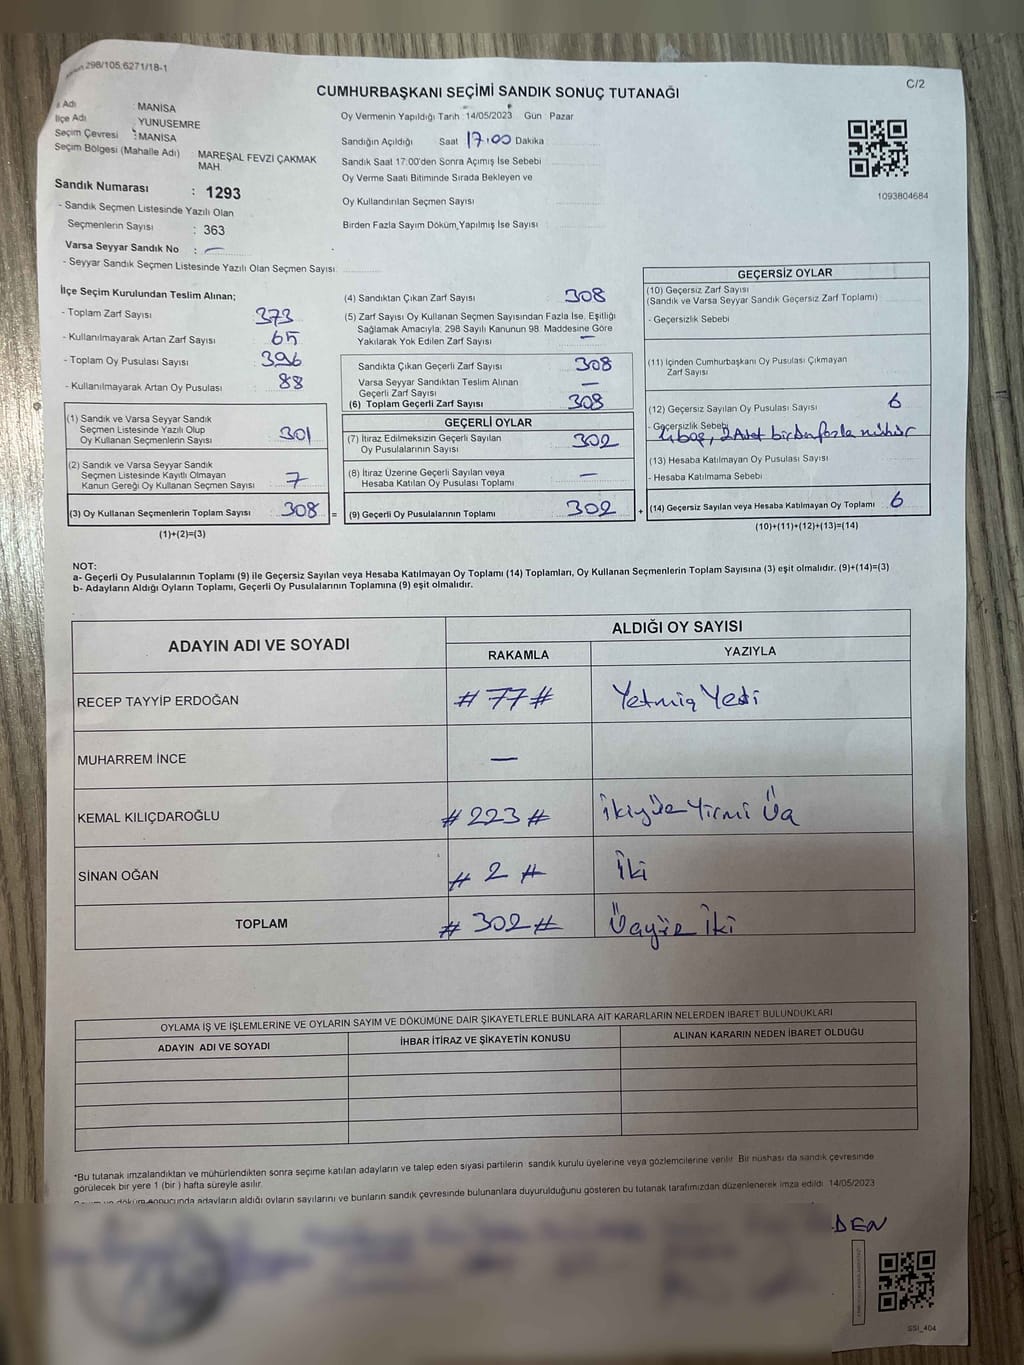 298/105.6271/18-1
C/2
CUMHURBAŞKANI SEÇİMİ SANDIK SONUÇ TUTANAĞI
Adı : MANİSA
İlçe Adı : YUNUSEMRE
Seçim Çevresi : MANİSA
Seçim Bölgesi (Mahalle Adı) MAREŞAL FEVZİ ÇAKMAK MAH
Sandık Numarası : 1293
- Sandık Seçmen Listesinde Yazılı Olan
Seçmenlerin Sayısı : 363
Varsa Seyyar Sandık No : —
- Seyyar Sandık Seçmen Listesinde Yazılı Olan Seçmen Sayısı
Oy Vermenin Yapıldığı Tarih : 14/05/2023 Gün Pazar
Sandığın Açıldığı Saat 17:00 Dakika
Sandık Saat 17:00'den Sonra Açımış İse Sebebi
Oy Verme Saati Bitiminde Sırada Bekleyen ve
Oy Kullandırılan Seçmen Sayısı
Birden Fazla Sayım Döküm Yapılmış İse Sayısı
1093804684
İlçe Seçim Kurulundan Teslim Alınan;
- Toplam Zarf Sayısı 373
- Kullanılmayarak Artan Zarf Sayısı 65
- Toplam Oy Pusulası Sayısı 396
- Kullanılmayarak Artan Oy Pusulası 88
(1) Sandık ve Varsa Seyyar Sandık
Seçmen Listesinde Yazılı Olup
Oy Kullanan Seçmenlerin Sayısı 301
(2) Sandık ve Varsa Seyyar Sandık
Seçmen Listesinde Kayıtlı Olmayan
Kanun Gereği Oy Kullanan Seçmen Sayısı 7
(3) Oy Kullanan Seçmenlerin Toplam Sayısı 308 =
(1)+(2)=(3)
(4) Sandıktan Çıkan Zarf Sayısı 308
(5) Zarf Sayısı Oy Kullanan Seçmen Sayısından Fazla İse, Eşitliği
Sağlamak Amacıyla; 298 Sayılı Kanunun 98. Maddesine Göre
Yakılarak Yok Edilen Zarf Sayısı —
Sandıkta Çıkan Geçerli Zarf Sayısı 308
Varsa Seyyar Sandıktan Teslim Alınan
Geçerli Zarf Sayısı —
(6) Toplam Geçerli Zarf Sayısı 308
GEÇERLİ OYLAR
(7) İtiraz Edilmeksizin Geçerli Sayılan
Oy Pusulalarının Sayısı 302
(8) İtiraz Üzerine Geçerli Sayılan veya
Hesaba Katılan Oy Pusulası Toplamı —
(9) Geçerli Oy Pusulalarının Toplamı 302 +
GEÇERSİZ OYLAR
(10) Geçersiz Zarf Sayısı
(Sandık ve Varsa Seyyar Sandık Geçersiz Zarf Toplamı)
- Geçersizlik Sebebi
(11) İçinden Cumhurbaşkanı Oy Pusulası Çıkmayan
Zarf Sayısı
(12) Geçersiz Sayılan Oy Pusulası Sayısı 6
- Geçersizlik Sebebi
4 boş, 2 Adet birden fazla mühür
(13) Hesaba Katılmayan Oy Pusulası Sayısı
- Hesaba Katılmama Sebebi
(14) Geçersiz Sayılan veya Hesaba Katılmayan Oy Toplamı 6
(10)+(11)+(12)+(13)=(14)
NOT:
a- Geçerli Oy Pusulalarının Toplamı (9) ile Geçersiz Sayılan veya Hesaba Katılmayan Oy Toplamı (14) Toplamları, Oy Kullanan Seçmenlerin Toplam Sayısına (3) eşit olmalıdır. (9)+(14)=(3)
b- Adayların Aldığı Oyların Toplamı, Geçerli Oy Pusulalarının Toplamına (9) eşit olmalıdır.
ADAYIN ADI VE SOYADI
ALDIĞI OY SAYISI
RAKAMLA YAZIYLA
RECEP TAYYİP ERDOĞAN # 77 # Yetmiş Yedi
MUHARREM İNCE —
KEMAL KILIÇDAROĞLU # 223 # İkiyüz Yirmi Üç
SİNAN OĞAN # 2 # İki
TOPLAM # 302 # Üçyüz İki
OYLAMA İŞ VE İŞLEMLERİNE VE OYLARIN SAYIM VE DÖKÜMÜNE DAİR ŞİKAYETLERLE BUNLARA AİT KARARLARIN NELERDEN İBARET BULUNDUKLARI
ADAYIN ADI VE SOYADI İHBAR İTİRAZ VE ŞİKAYETİN KONUSU ALINAN KARARIN NEDEN İBARET OLDUĞU
*Bu tutanak imzalandıktan ve mühürlendikten sonra seçime katılan adayların ve talep eden siyasi partilerin sandık kurulu üyelerine veya gözlemcilerine verilir. Bir nüshası da sandık çevresinde
görülecek bir yere 1 (bir ) hafta süreyle asılır.
döküm sonucunda adayların aldığı oyların sayılarını ve bunların sandık çevresinde bulunanlara duyurulduğunu gösteren bu tutanak tarafımızdan düzenlenerek imza edildi. 14/05/2023
DEN
SSI_404